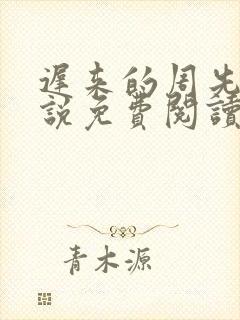 遲來的周先
說免費閱讀
青木源